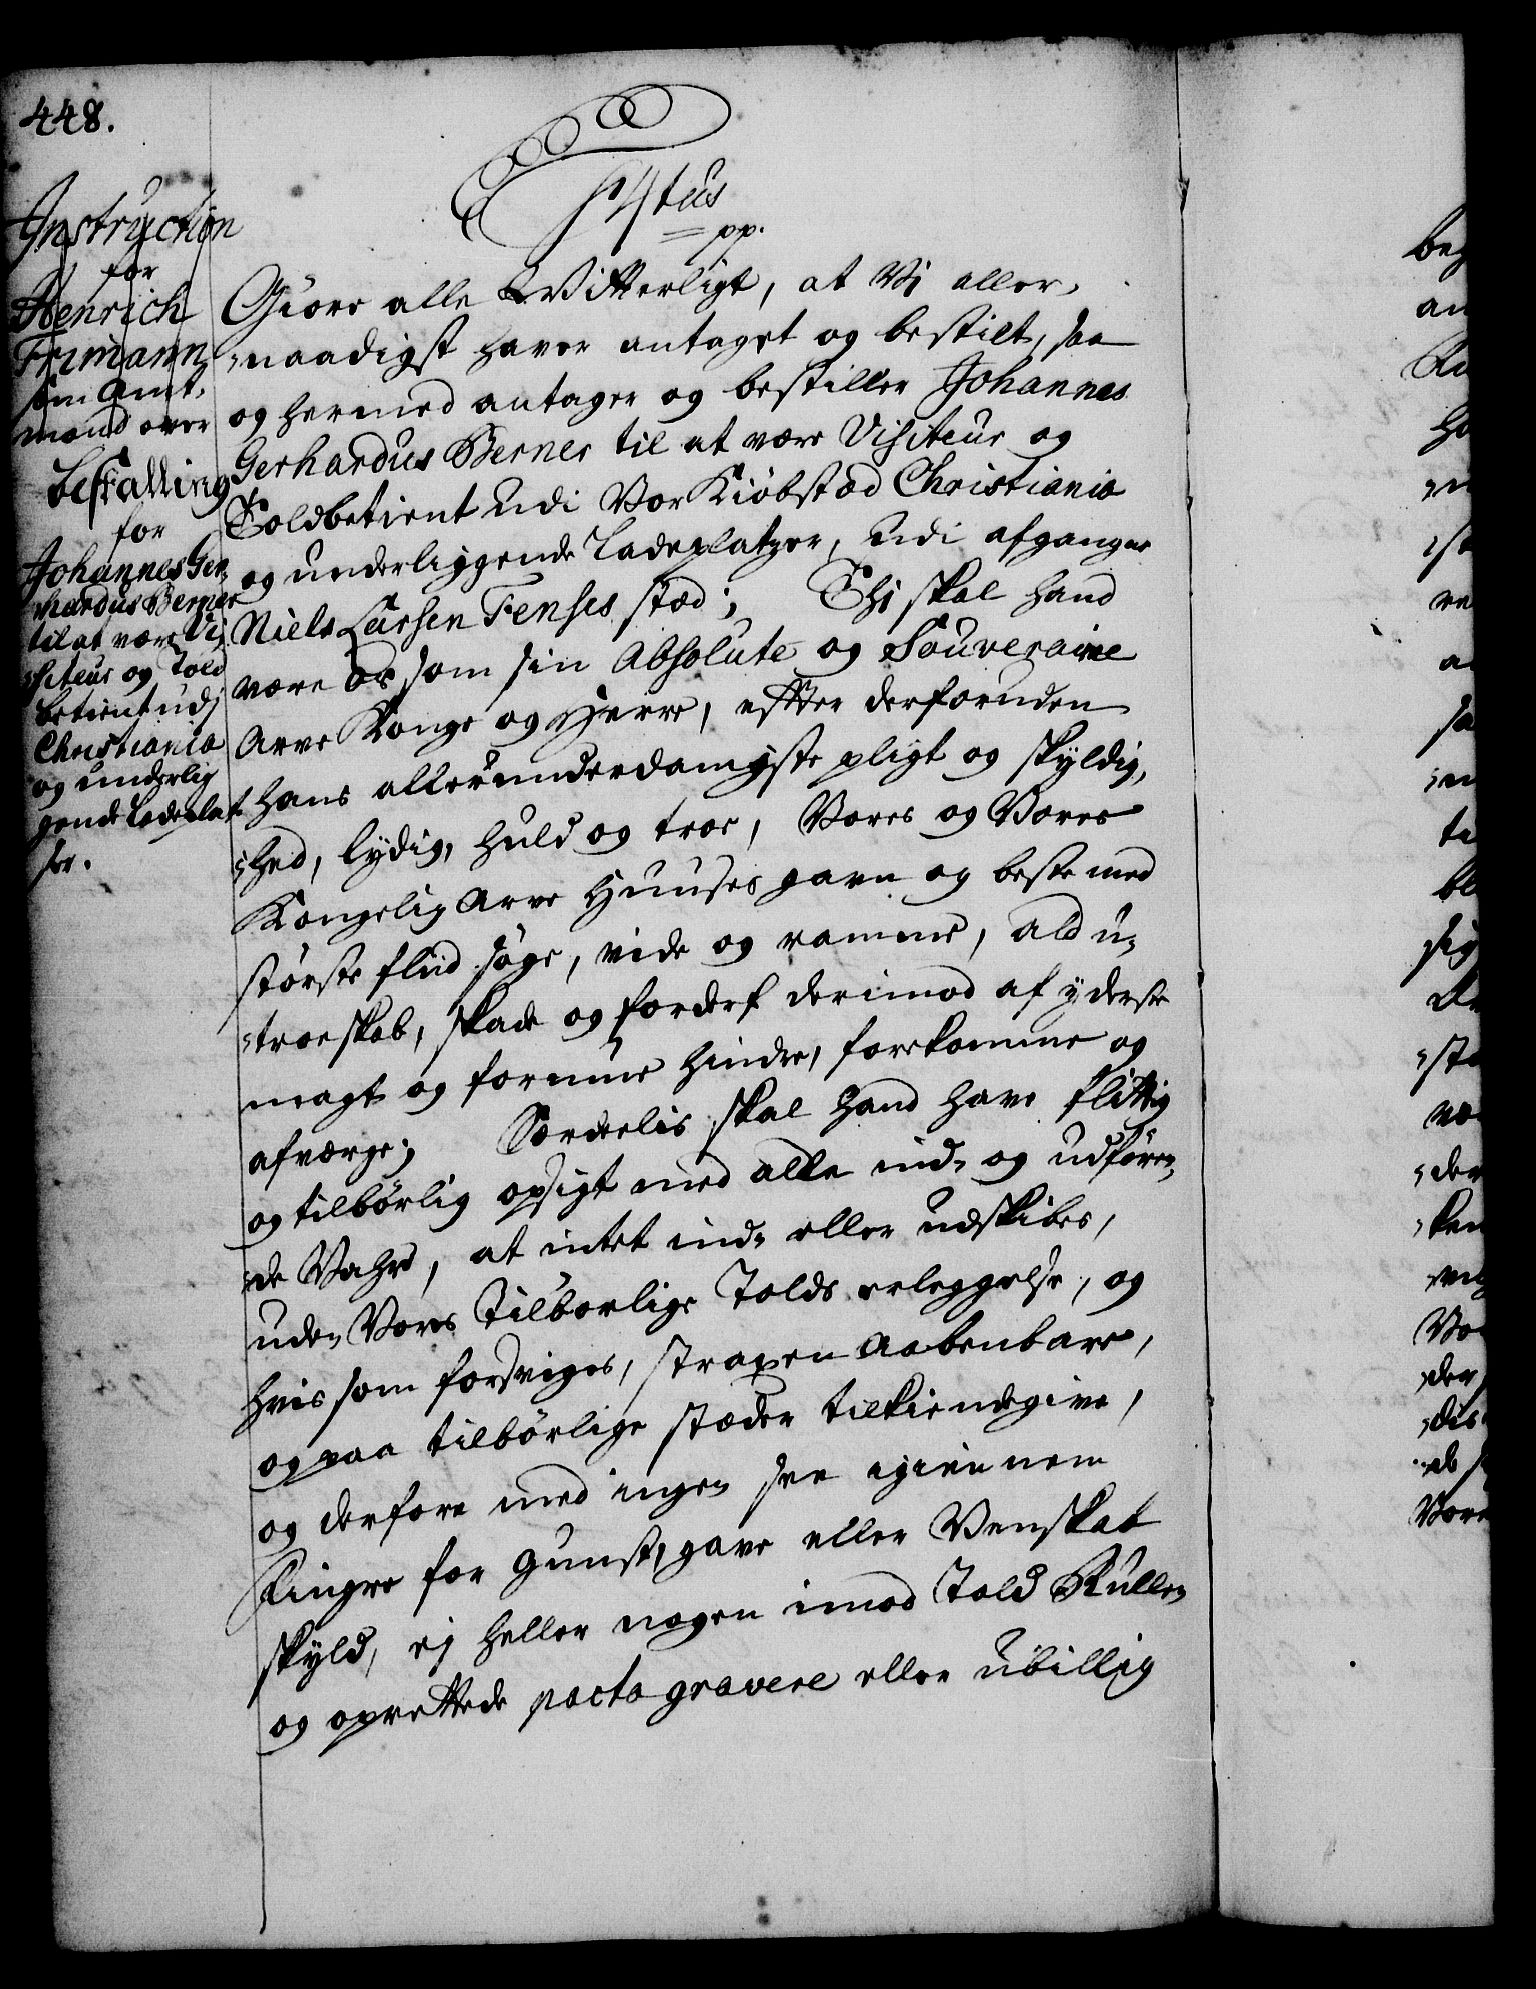 448.
Instruction
for
Henrich
Frimann
som Amt-
mand over
Bestalling
for
Johannes Ger-
hardus Berner
til at være Vi-
siteur og Told
betient udj
Christiania
og underlig
gende Ladeplat
ser.
F 4tus
pp.
Giøre alle Witterligt, at Vi aller-
naadigst haver antaget og bestilt, saa
og hermed antager og bestiller Johannes
Gerhardus Berner til at være Visiteur og
Toldbetient udi Vor Kiøbstæd Christiania
og underliggende Ladeplatzer, udi afgangne
Niels Larsen Fenses stæd; Thi skal hand
være Os som sin Absolute og Souveraine
Arve Konge og Herre, effter derforuden
hans allerunderdanigste pligt og skyldig-
hed, lydig, huld og troe, Vores og Vores
Kongelig Arve Huuses gavn og beste med
største fliid søge, vide og ramme, ald u-
troeskab, skade og forderf derimod af yderste
magt og formue hindre, forekomme og
afværge; Særdelis skal hand have flittig
og tilbørlig opsigt med alle ind- og udføren-
de Vahre, at intet ind- eller udskibes,
uden Vores Tilbørlige Tolds erleggelse, og
hvis som forsviges, straxen aabenbare,
og paa tilbørlige stæder tilkiendegive,
og derfore med ingen see igiennem
Fingre for gunst, gave eller Venskab
skyld, ej heller nogen imod Told Rullen
og oprettede pacta gravere eller ubillig